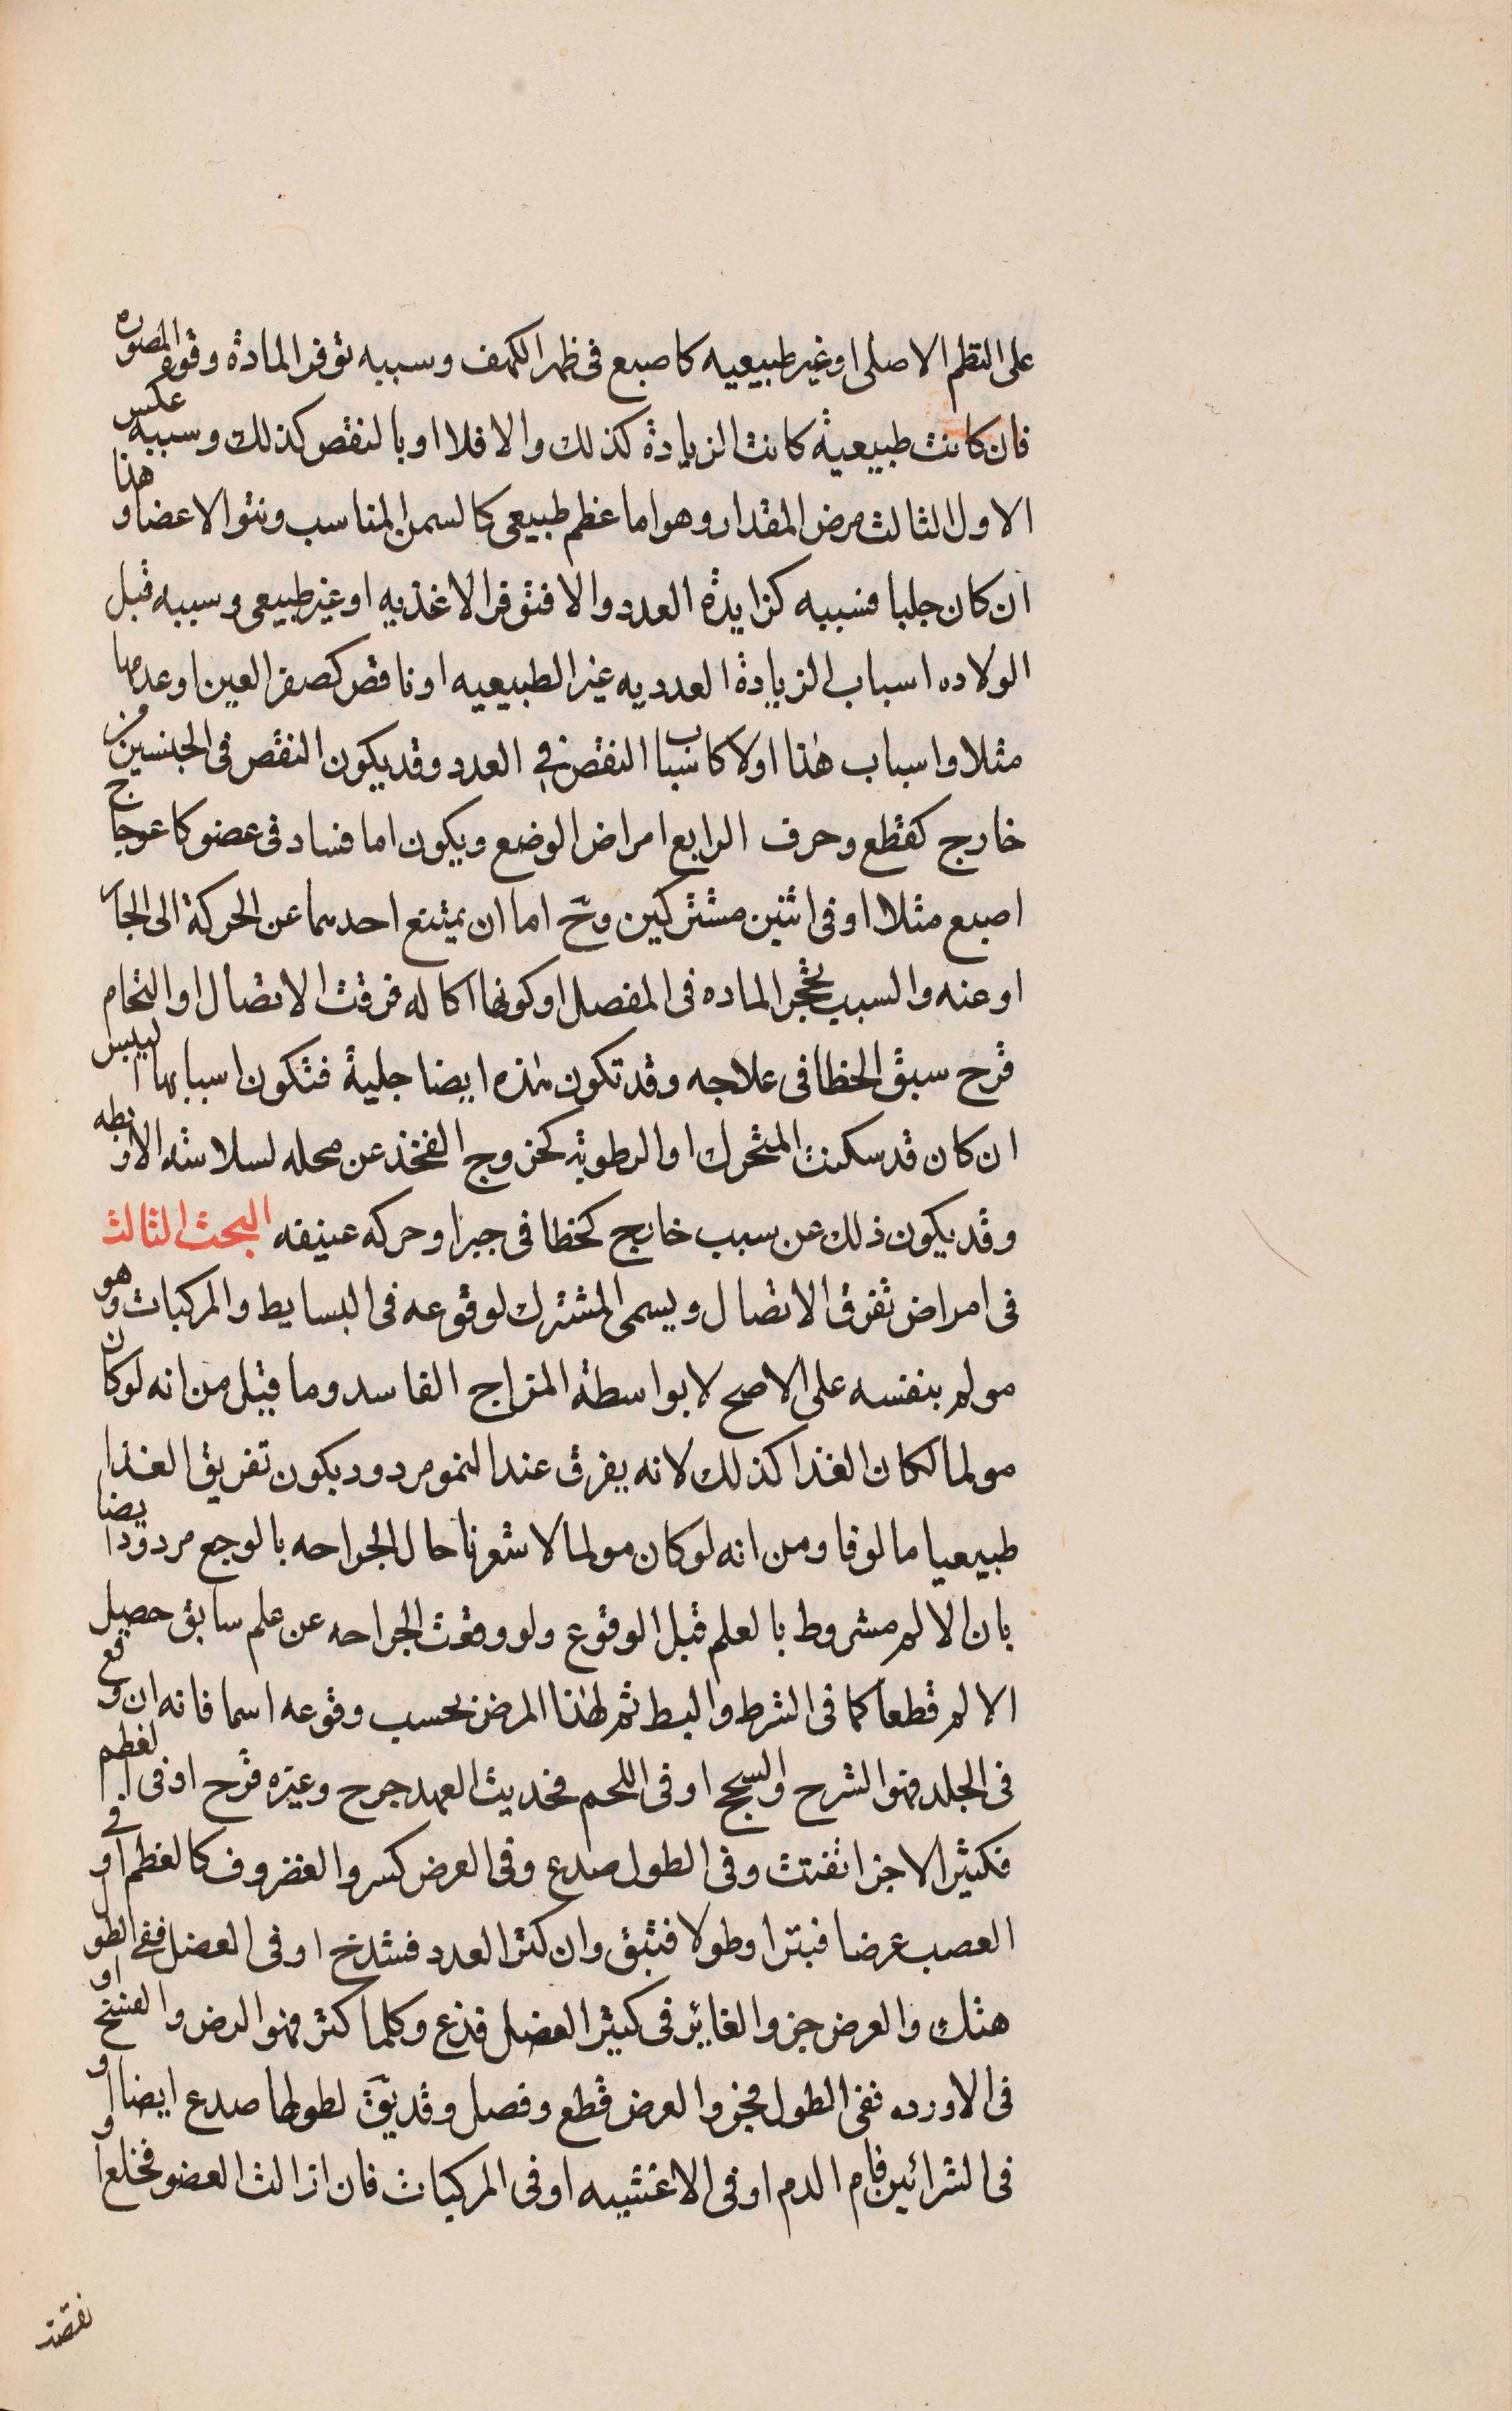 على النظم الاصلى او غير طبيعيه كاصبع فى ظهر الكهف وسببه توفر المادة وقوة المصوره
فان كانت طبيعية كانت الزيادة كذلك والا فلا او بالنقص كذلك وسببه عكس
الاول الثالث مرض المقدار وهو اما عظم طبيعى كالسمن المناسب ونتو الاعضا وهذا
ان كان جلبا فسببه كزايدة العدد والا فتوفر الاغذيه او غير طبيعى وسببه قبل
الولاده اسباب الزيادة العدديه غير الطبيعيه او ناقص كصغر العين او عدمها
مثلا واسباب هذا اولا كاسباب النقص فى العدد وقد يكون النقص فى الجنسين من
خارج كقطع وحرف الرابع امراض الوضع ويكون اما فساد فى عضو كاعوجاج
اصبع مثلا او فى اثنين مشتركين وح اما ان يمتنع احدهما عن الحركة الى الجار
او عنه والسبب تحجر الماده فى المفصل او كونها اكاله فرقت الاتصال او التحام
قرح سبق الخطا فى علاجه وقد تكون هذه ايضا جلية فتكون اسبابها اليبس
ان كان قد سكنت المتحرك او الرطوبة كخروج الفخذ عن محله لسلاسة الاربطه
وقد يكون ذلك عن سبب خارج كخطا فى جبر او حركه عنيفه البحث الثالث
فى امراض تفرق الاتصال ويسمى المشترك لوقوعه فى البسايط والمركبات وهو
مولم بنفسه على الاصح لا بواسطة المزاج الفاسد وما قيل من انه لو كان
مولما لكان الغذا كذلك لانه يفرق عند النمو مردود بكون تفريق الغذا
طبيعيا مالوفا ومن انه لو كان مولما لاشعرنا حال الجراحه بالوجع مردود ايضا
بان الالم مشروط بالعلم قبل الوقوع ولو وقعت الجراحه عن علم سابق حصل
الالم قطعا كما فى الشرط والبط ثم لهذا المرض بحسب وقوعه اسما فانه ان وقع
فى الجلد فهو الشرح والسحج او فى اللحم فحديث العهد جرح وغيره قرح او فى العظم
فكثير الاجزا تفتت وفى الطول صدع وفى العرض كسر والغضروف كالعظم او فى
العصب عرضا فبتر او طولا فشق وان كثر العدد فشدخ او فى العضل ففى الطول
هتك والعرض جز والغاير فى كثير العضل فدع وكلما كثر فهو الرض والفسخ او
فى الاورده ففى الطول فجر والعرض قطع وفصل وقد يق لطولها صدع ايضا او
فى الشرائين فام الدم او فى الاغشيه او فى المركبات فان ازالت العضو فخلع او